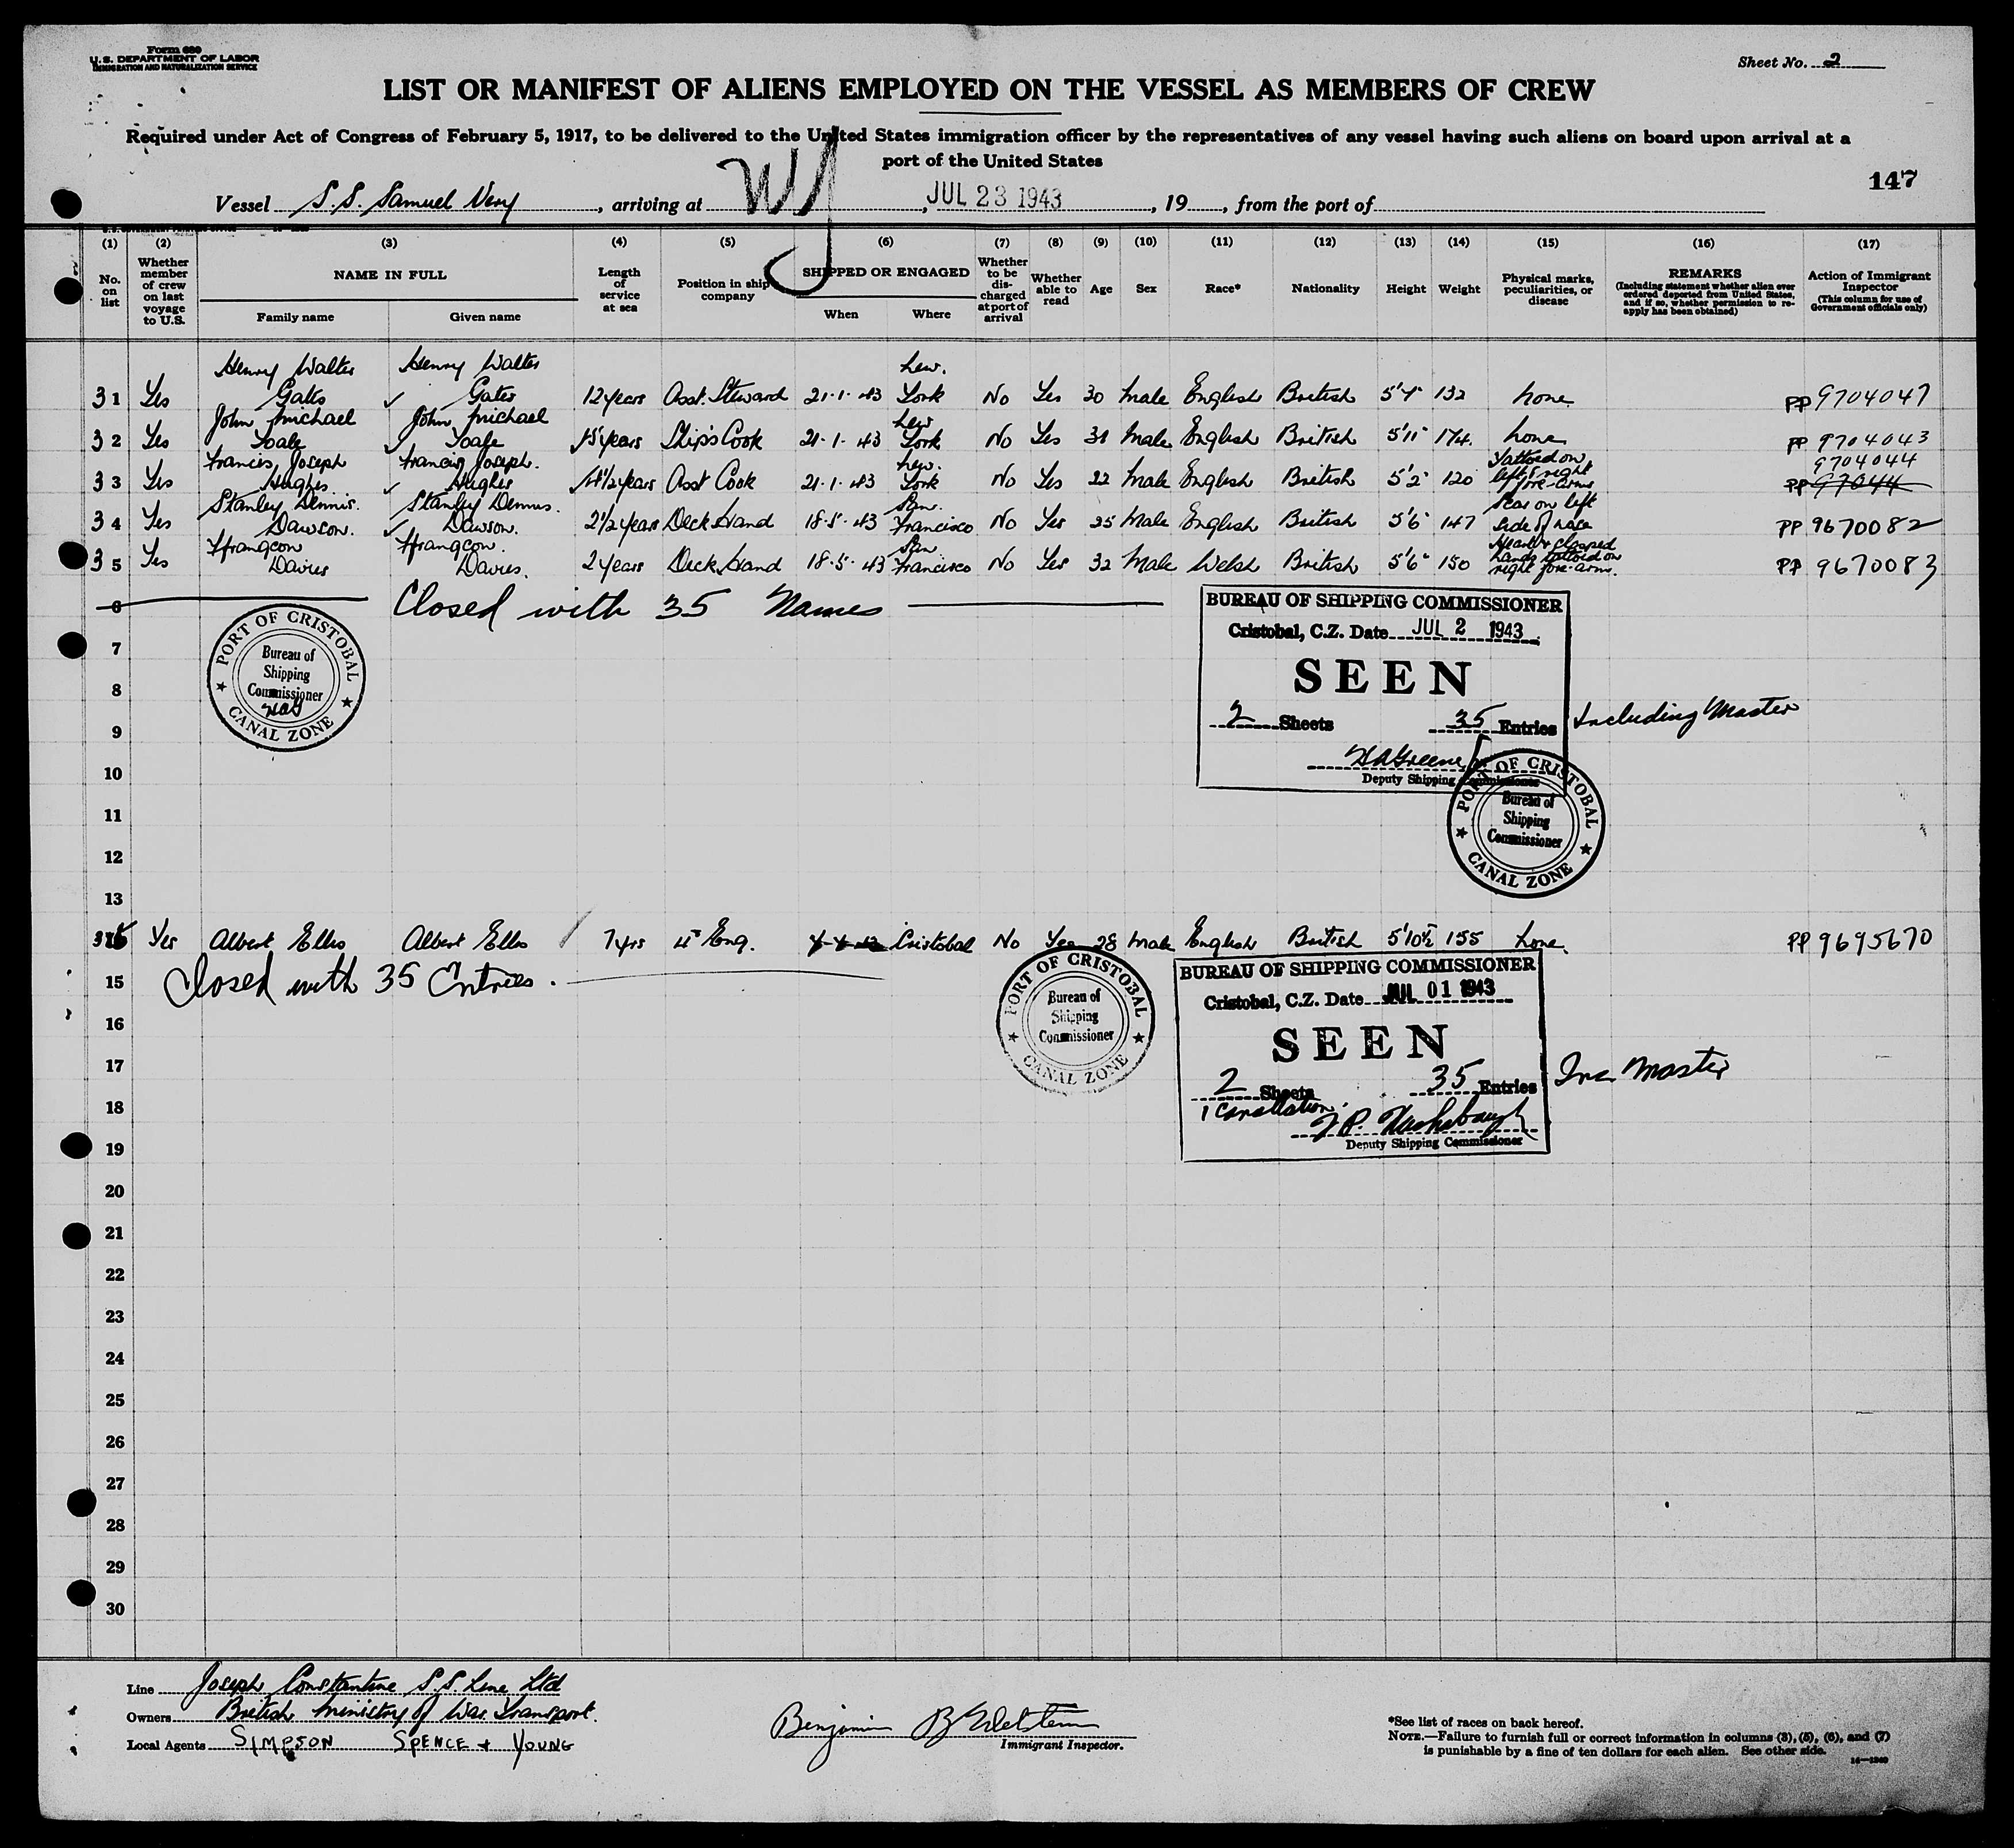 Form 680
U.S. DEPARTMENT OF LABOR
IMMIGRATION AND NATURALIZATION SERVICE
Sheet No. 2
LIST OR MANIFEST OF ALIENS EMPLOYED ON THE VESSEL AS MEMBERS OF CREW
Required under Act of Congress of February 5, 1917, to be delivered to the United States immigration officer by the representatives of any vessel having such aliens on board upon arrival at a
port of the United States
147
Vessel S.S. Samuel Very, arriving at NY, JUL 23 1943, 19, from the port of
(1) (2) (3) (4) (5) (6) (7) (8) (9) (10) (11) (12) (13) (14) (15) (16) (17)
No. on list
Whether member of crew on last voyage to U.S.
NAME IN FULL
Family name
Given name
Length of service at sea
Position in ship's company
SHIPPED OR ENGAGED
When
Where
Whether to be discharged at port of arrival
Whether able to read
Age
Sex
Race*
Nationality
Height
Weight
Physical marks, peculiarities, or disease
REMARKS
(Including statement whether alien ever ordered deported from United States, and if so, whether permission to reapply has been obtained)
Action of Immigrant Inspector
(This column for use of Government officials only)
31 Yes Henry Walter Gates Henry Walter Gates 12 years Asst. Steward 21-1-43 New York No Yes 30 Male English British 132 none PP 9704047
32 Yes John Michael John Michael years Ship's Cook 21-1-43 New York No Yes 31 Male English British 5'11" 174 none PP 9704043
33 Yes Francis Joseph Hughes Francis Joseph Hughes 4 1/2 years Asst Cook 21-1-43 New York No Yes 22 Male English British 5'2" 120 Tattoed on left & right fore-arms 9704044 PP 97044
34 Yes Stanley Dennis Dawson. Stanley Dennis Dawson. 2 1/2 years Deck Hand 18-5-43 San Francisco No Yes 25 Male English British 5'6" 147 Scar on left side of face PP 9670082
35 Yes Hrangcon Davies Hrangcon Davies. 2 years Deck Hand 18-5-43 San Francisco No Yes 32 Male Welsh British 5'6" 150 Heart & clasped hands tattoed on right fore-arm. PP 9670083
6 Closed with 35 Names
PORT OF CRISTOBAL
Bureau of
Shipping
Commissioner
CANAL ZONE
BUREAU OF SHIPPING COMMISSIONER
Cristobal, C.Z. Date JUL 2 1943
SEEN
2 Sheets 35 Entries Including Master
H A Greene
Deputy Shipping Commissioner
PORT OF CRISTOBAL
Bureau of
Shipping
Commissioner
CANAL ZONE
7
8
9
10
11
12
13
Yes Albert Ellis Albert Ellis 7 yrs 4th Eng. Cristobal No Yes 28 Male English British 5'10½ 155 none. PP 9695670
15 Closed with 35 Entries.
PORT OF CRISTOBAL
Bureau of
Shipping
Commissioner
CANAL ZONE
BUREAU OF SHIPPING COMMISSIONER
Cristobal, C.Z. Date JUL 01 1943
SEEN
2 Sheets 35 Entries Inc Master
1
Deputy Shipping Commissioner
16
17
18
19
20
21
22
23
24
25
26
27
28
29
30
Line Joseph Constantine S.S. Line Ltd
Owners British Ministry of War Transport.
Local Agents SIMPSON SPENCE + YOUNG
Benjamin
Immigrant Inspector.
*See list of races on back hereof.
NOTE.—Failure to furnish full or correct information in columns (3), (5), (6), and (7)
is punishable by a fine of ten dollars for each alien. See other side.